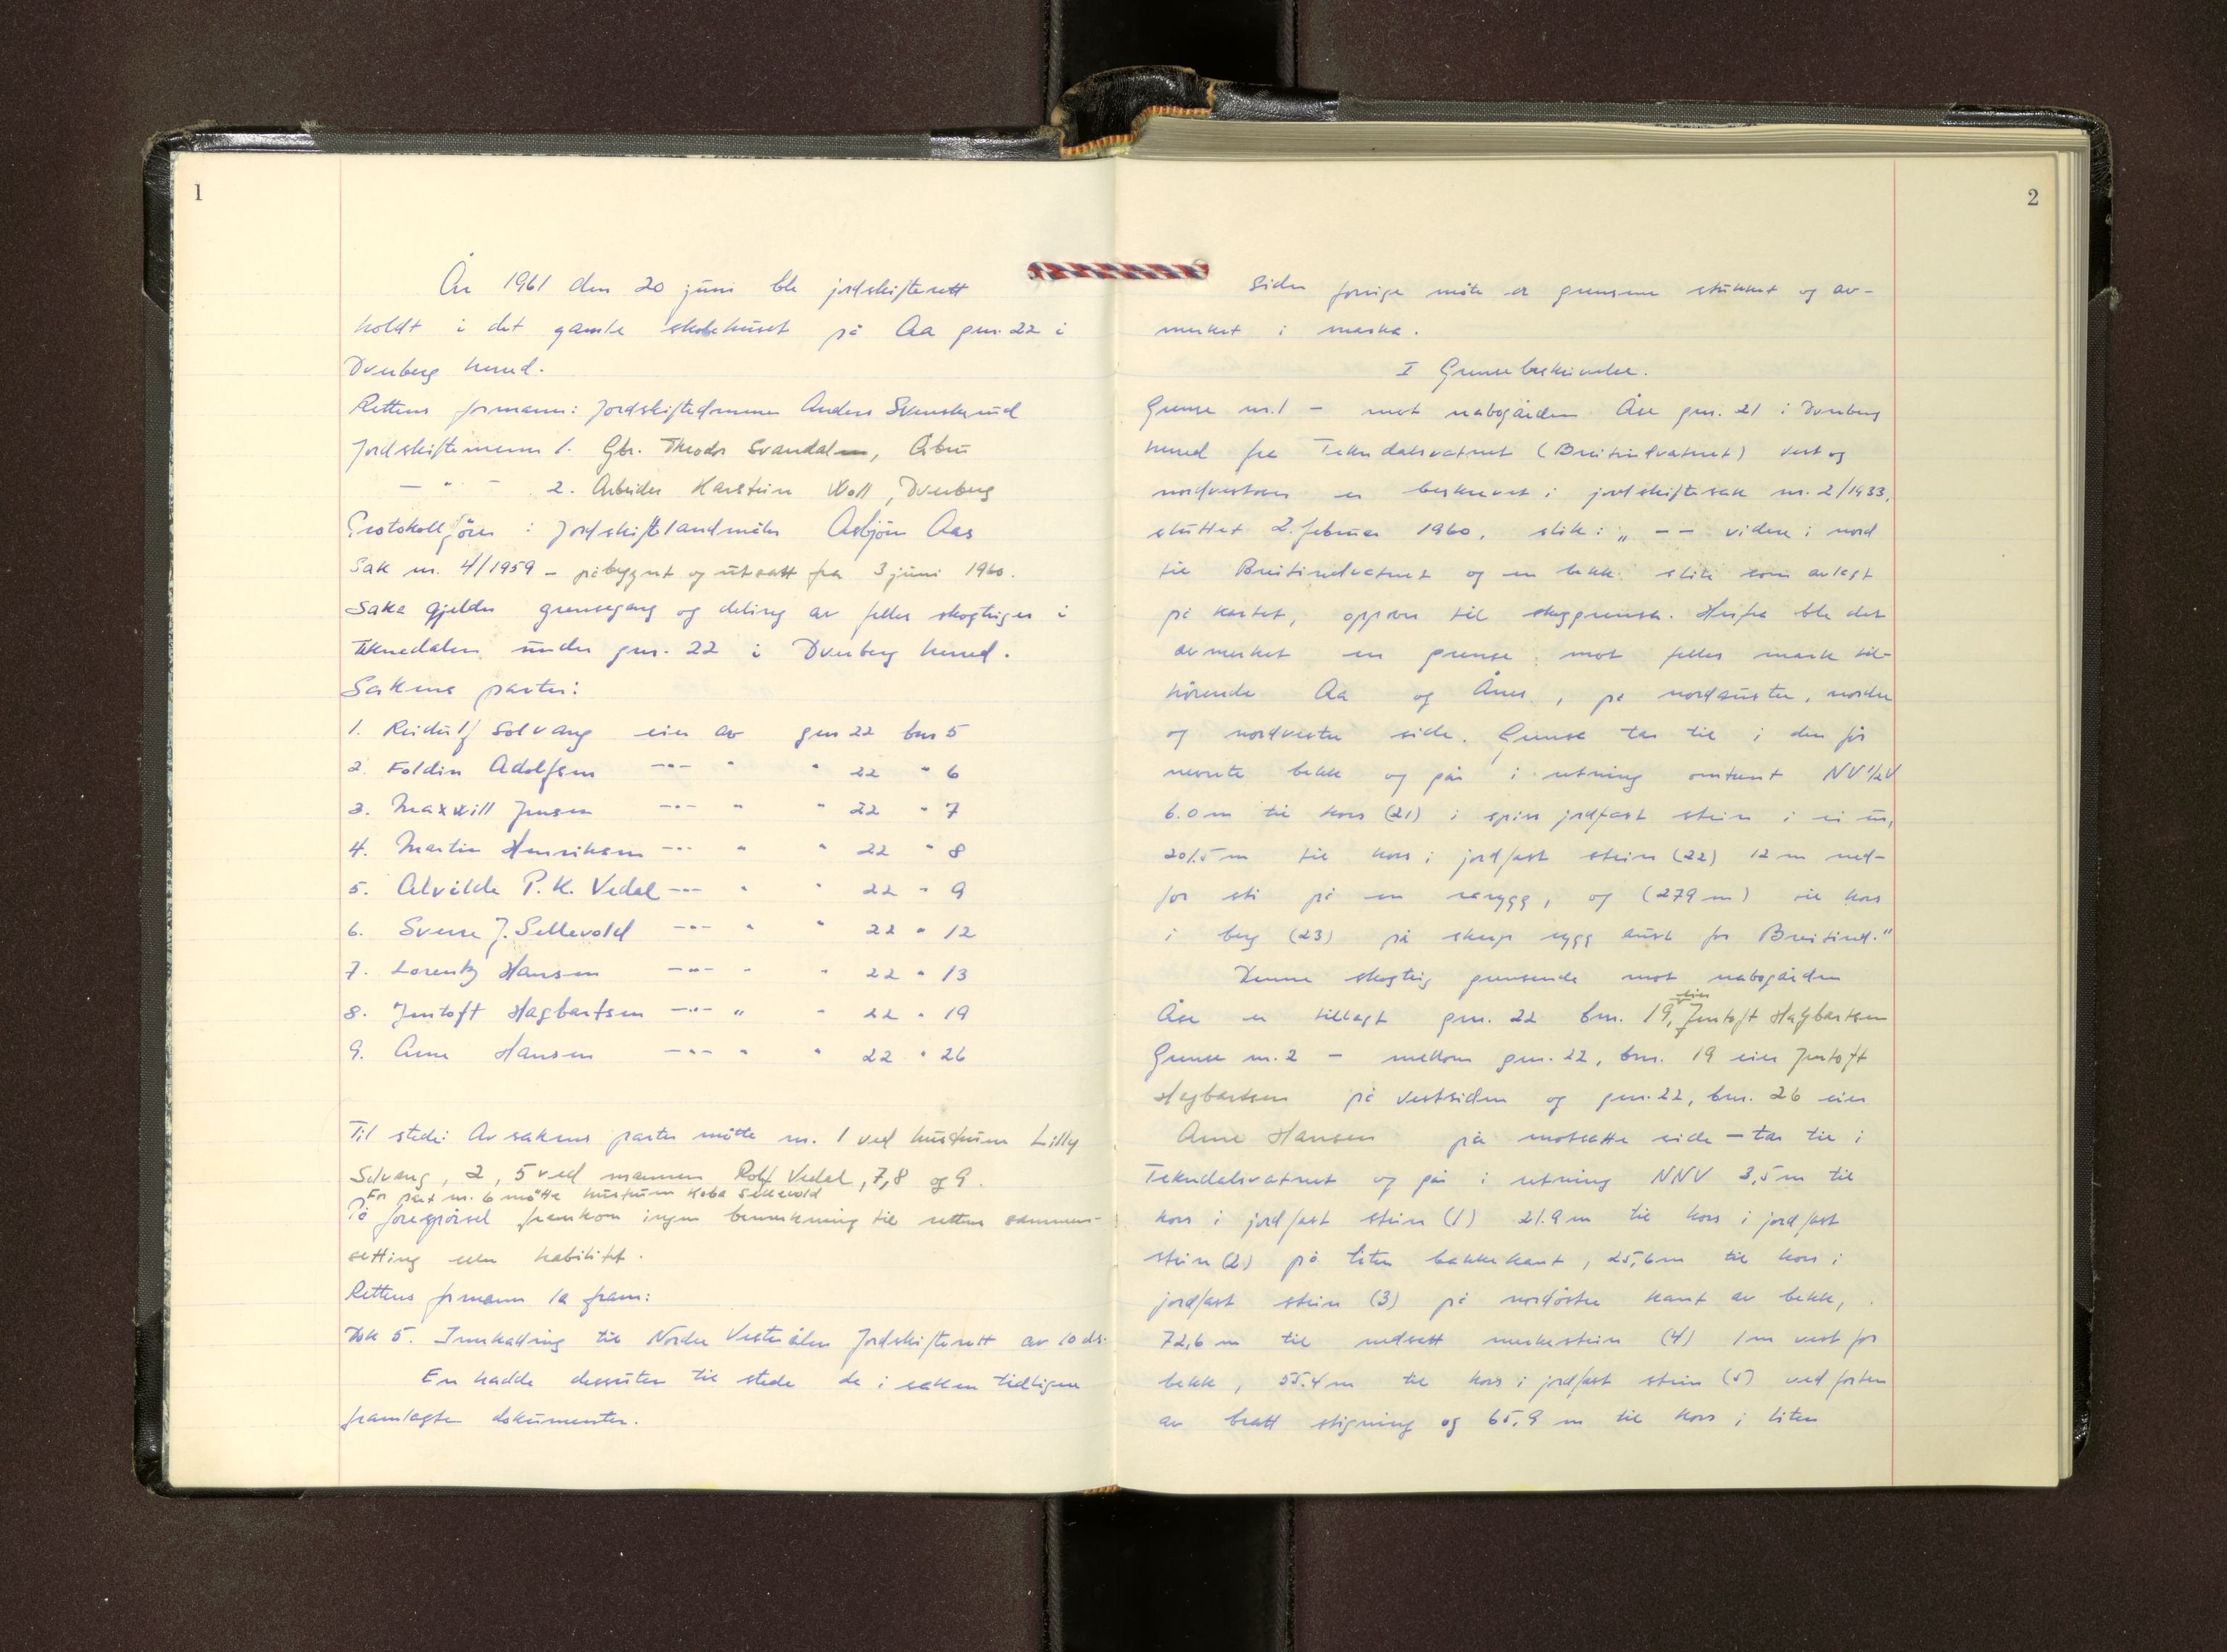 1
År 1961 den 20 juni ble jordskifterett
holdt i det gamle skolehuset på Aa gnr. 22 i
Dverberg herred.
Rettens formann: Jordskiftedommer Anders Svenskerud
Jordskiftemenn 1. Gbr. Theodor Svandalen, Åbu
— " — 2. Arbeider Harstein Woll, Dverberg
Protokollfører: Jordskiftelandmåler Asbjørn Aas
Sak nr. 4/1959 - påbegynt og utsatt fra 3 juni 1960.
Saka gjelder grensegang og deling av felles skogteiger i
Teknedalen under gnr. 22 i Dverberg herred.
Sakens parter:
1. Reidulf Solvang eier av gnr 22 bnr 5
2. Foldin Adolfsen —"— " " 22 " 6
3. Maxwill Jensen —"— " " 22 " 7
4. Martin Henriksen —"— " " 22 " 8
5. Alvilde P. K. Vedal —"— " " 22 " 9
6. Sverre J. Sellevold —"— " " 22 " 12
7. Lorentz Hansen —"— " " 22 " 13
8. Jentoft Hagbartsen —"— " " 22 " 19
9. Arne Hansen —"— " " 22 " 26
Til stede: Av sakens parter møtte nr. 1 ved hustruen Lilly
Solvang, 2, 5 ved mannen Rolf Vedal, 7, 8 og 9.
For part nr. 6 møtte hustruen Sellevold
På foregørsel framkom ingen bemerkning til rettens sammen-
setting eller habilitet.
Rettens formann la fram:
Dok 5. Innkalling til Nordre Vesterålen Jordskifterett av 10 ds.
En hadde dessuten til stede de i saken tidligere
framlagte dokumenter.
2
Siden forrige møte er grensene stukket og av-
merket i marka.
I Grensebeskrivelse.
Grense nr. 1 - mot nabogården Åse gnr. 21 i Dverberg
herred fra Tekndalsvatnet (Breitindvatnet) vest og
nordvestover er beskrevet i jordskiftesak nr. 2/1933,
sluttet 2. februar 1960, slik: „ — — videre i nord
til Breitindvatnet og en bekk slik som avlagt
på kartet, oppover til skoggrensa. Herfra ble det
avmerket en grense mot felles mark til-
hørende Aa og Ånes, på nordaustre, nordre
og nordvestre side. Grensa tar til i den før
nevnte bekk og går i retning omtrent NV 1/2 V
6.0 m til kors (21) i spiss jordfast stein i ei ur,
201.5 m til kors i jordfast stein (22) 12 m ned-
for sti på en rarygg, og (279 m) til kors
i berg (23) på skarp rygg aust for Breitind."
Denne skogteig grensende mot nabogården
Åse er tillagt gnr. 22 bnr. 19, eier Jentoft Hagbartsen
Grense nr. 2 - mellom gnr. 22, bnr. 19 eier Jentoft
Hagbartsen på vestsiden og gnr. 22, bnr. 26 eier
Arne Hansen på motsatte side - tar til i
Tekndalsvatnet og går i retning NNV 3,5 m til
kors i jordfast stein (1) 21.9 m til kors i jordfast
stein (2) på liten bakkekant, 25,6 m til kors i
jordfast stein (3) på nordøstre kant av bekk,
72,6 m til nedsett merkestein (4) 1 m vest for
bekk, 55.4 m til kors i jordfast stein (5) ved foten
av bratt stigning og 65,9 m til kors i liten